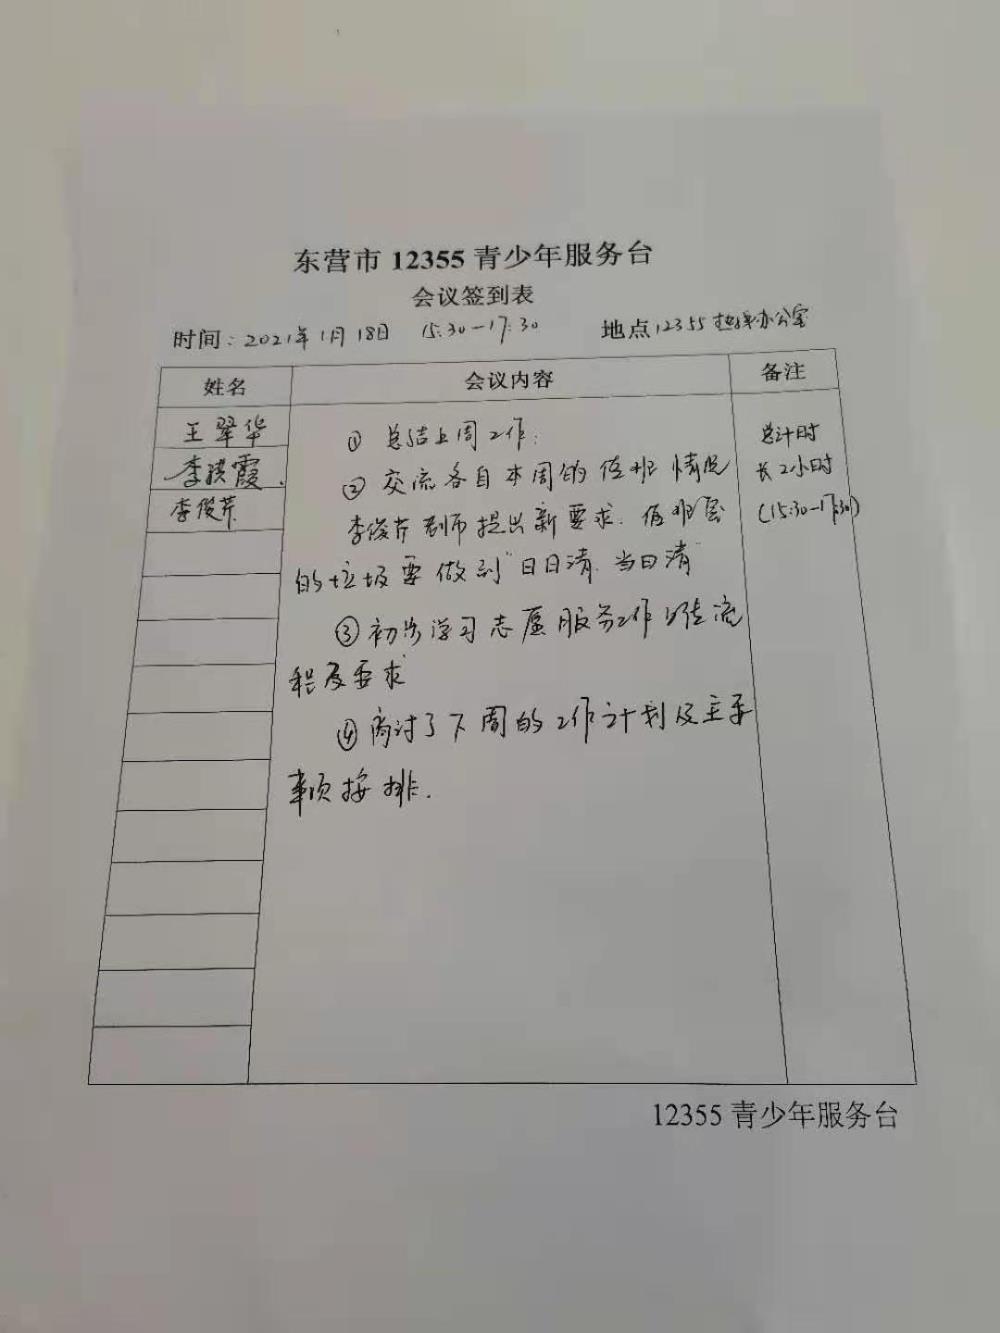 东营市 12355 青少年服务台
会议签到表
时间：2021年1月18日 15:30-17:30 地点 12355 办公室
姓名 会议内容 备注
王翠华
李琪霞.
李俊芹
① 总结上周工作；
② 交流各自本周的值班情况
李俊芹老师提出新要求. 值班室
的垃圾要做到“日日清. 当日清”
③ 初步学习志愿服务工作 流
程及要求
④ 商讨了下周的工作计划及主要
事项按排.
总计时
长2小时
(15:30-17:30)
12355 青少年服务台